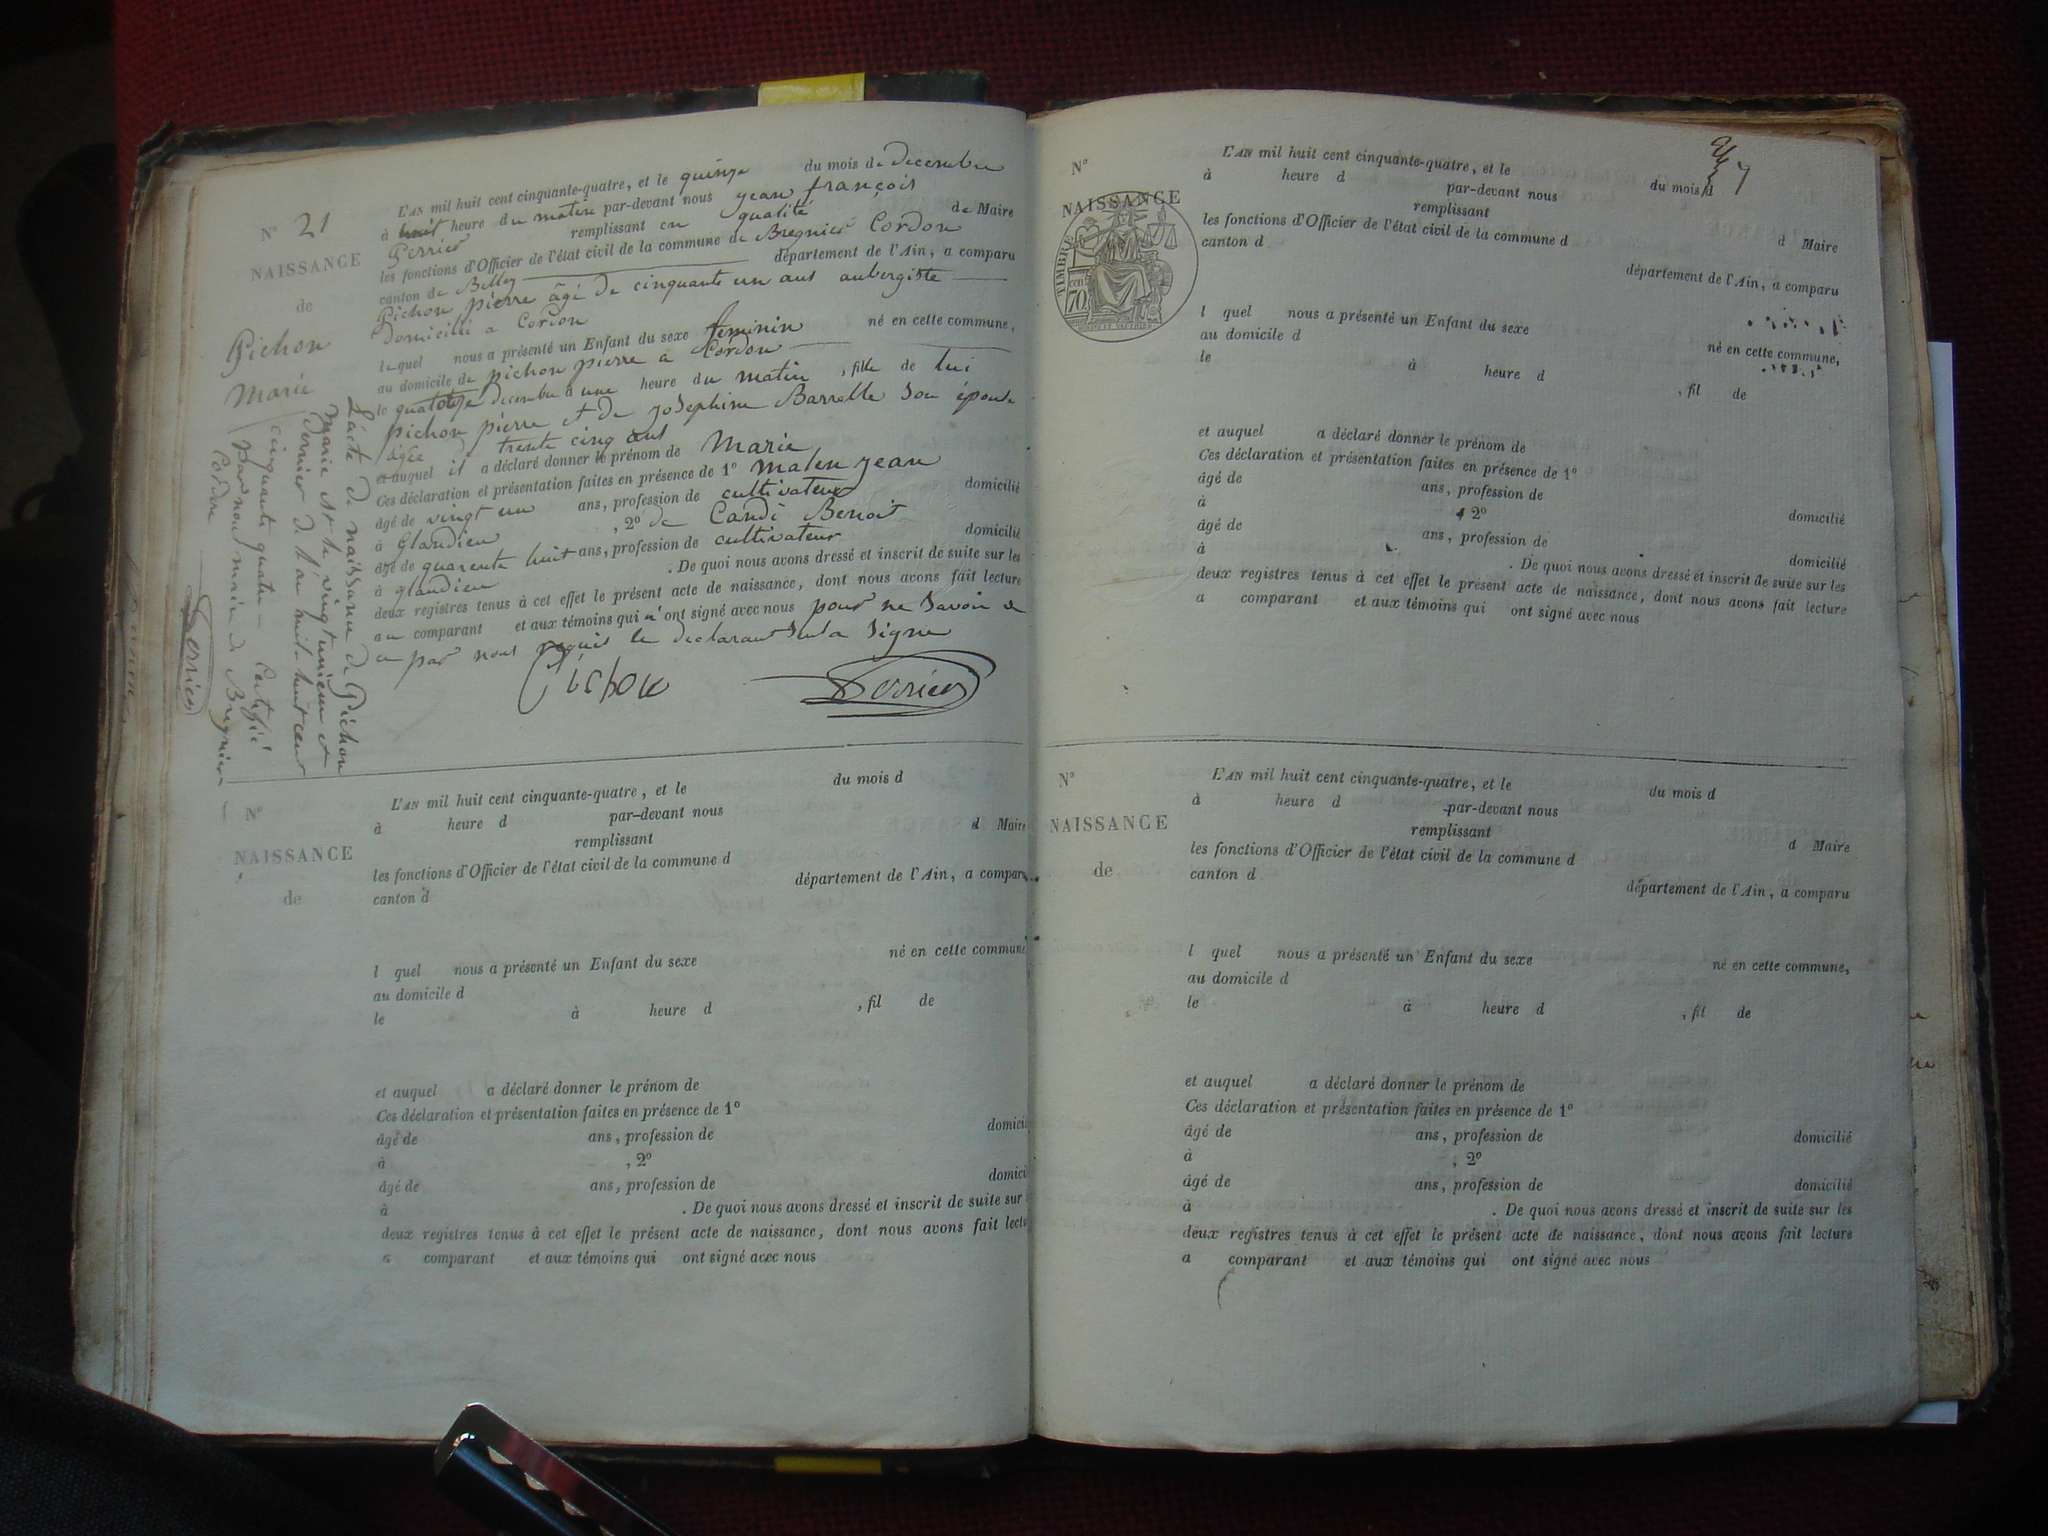 N° 21
NAISSANCE
de
Pichon
Marie
L'AN mil huit cent cinquante-quatre, et le quinze du mois de decembre
à huit heure du matin par-devant nous jean françois
Perrier remplissant en qualité de Maire
les fonctions d'Officier de l'état civil de la commune de Bregnier Cordon
canton de Belley département de l'Ain, a comparu
Pichon pierre âgé de cinquante un ans aubergiste
domicilié a Cordon
lequel nous a présenté un Enfant du sexe feminin né en cette commune,
au domicile de pichon pierre a Cordon
le quatorze decembre à une heure du matin, fille de lui
pichon pierre et de josephine Barrelle son épouse
âgée trente cinq ans
et auquel il a déclaré donner le prénom de Marie
Ces déclaration et présentation faites en présence de 1° jean
âgé de vingt un ans, profession de cultivateur domicilié
à Glandieu, 2° de Candi Benoit
âgé de quarente huit ans, profession de cultivateur domicilié
à glandieu. De quoi nous avons dressé et inscrit de suite sur les
deux registres tenus à cet effet le présent acte de naissance, dont nous avons fait lecture
au comparant et aux témoins qui n'ont signé avec nous pour ne savoir de
ce par nous requis le declarant seul a signe
Pichon Perrier
L'acte de naissance de Pichon
Marie et le vingt unieme et
dernier de l'an mil huit cent
cinquante quatre Certifié
par nous maire de Bregnier-
Cordon
Perrier
N°
NAISSANCE
de
L'AN mil huit cent cinquante-quatre, et le du mois d
à heure d par-devant nous
remplissant d Maire
les fonctions d'Officier de l'état civil de la commune d
canton d département de l'Ain, a comparu
l quel nous a présenté un Enfant du sexe né en cette commune
au domicile d
le à heure d , fil de
et auquel a déclaré donner le prénom de
Ces déclaration et présentation faites en présence de 1°
âgé de ans, profession de domicil
à , 2°
âgé de ans, profession de domici
à . De quoi nous avons dressé et inscrit de suite sur
deux registres tenus à cet effet le présent acte de naissance, dont nous avons fait lectu
a comparant et aux témoins qui ont signé avec nous
N°
NAISSANCE
TIMBRE
70
L'AN mil huit cent cinquante-quatre, et le du mois d
à heure d par-devant nous
remplissant d Maire
les fonctions d'Officier de l'état civil de la commune d
canton d département de l'Ain, a comparu
l quel nous a présenté un Enfant du sexe né en cette commune,
au domicile d
le à heure d , fil de
et auquel a déclaré donner le prénom de
Ces déclaration et présentation faites en présence de 1°
âgé de ans, profession de domicilié
à , 2°
âgé de ans, profession de domicilié
à . De quoi nous avons dressé et inscrit de suite sur les
deux registres tenus à cet effet le présent acte de naissance, dont nous avons fait lecture
a comparant et aux témoins qui ont signé avec nous
N°
NAISSANCE
de
L'AN mil huit cent cinquante-quatre, et le du mois d
à heure d par-devant nous
remplissant d Maire
les fonctions d'Officier de l'état civil de la commune d
canton d département de l'Ain, a comparu
l quel nous a présenté un Enfant du sexe né en cette commune,
au domicile d
le à heure d , fil de
et auquel a déclaré donner le prénom de
Ces déclaration et présentation faites en présence de 1°
âgé de ans, profession de domicilié
à , 2°
âgé de ans, profession de domicilié
à . De quoi nous avons dressé et inscrit de suite sur les
deux registres tenus à cet effet le présent acte de naissance, dont nous avons fait lecture
a comparant et aux témoins qui ont signé avec nous